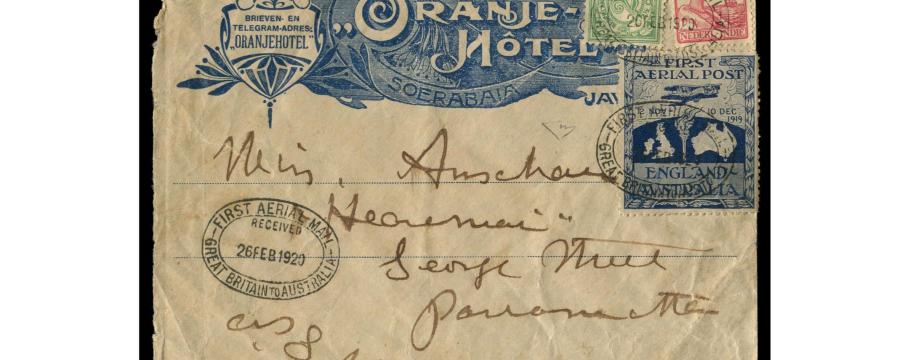 BRIEVEN- EN
TELEGRAM-ADRES:
„ORANJEHOTEL”
„ORANJE-
HÔTEL
SOERABAIA
JAV
26 FEB 1920
NEDERL. INDIE
FIRST
AERIAL POST
12 NOV. 10 DEC
1919
ENGLAND-
AUSTRALIA
FIRST AERIAL MAIL
GREAT BRITAIN TO AUSTRALIA
Miss.
George Street
Parramatta
FIRST AERIAL MAIL
RECEIVED
26 FEB 1920
GREAT BRITAIN TO AUSTRALIA